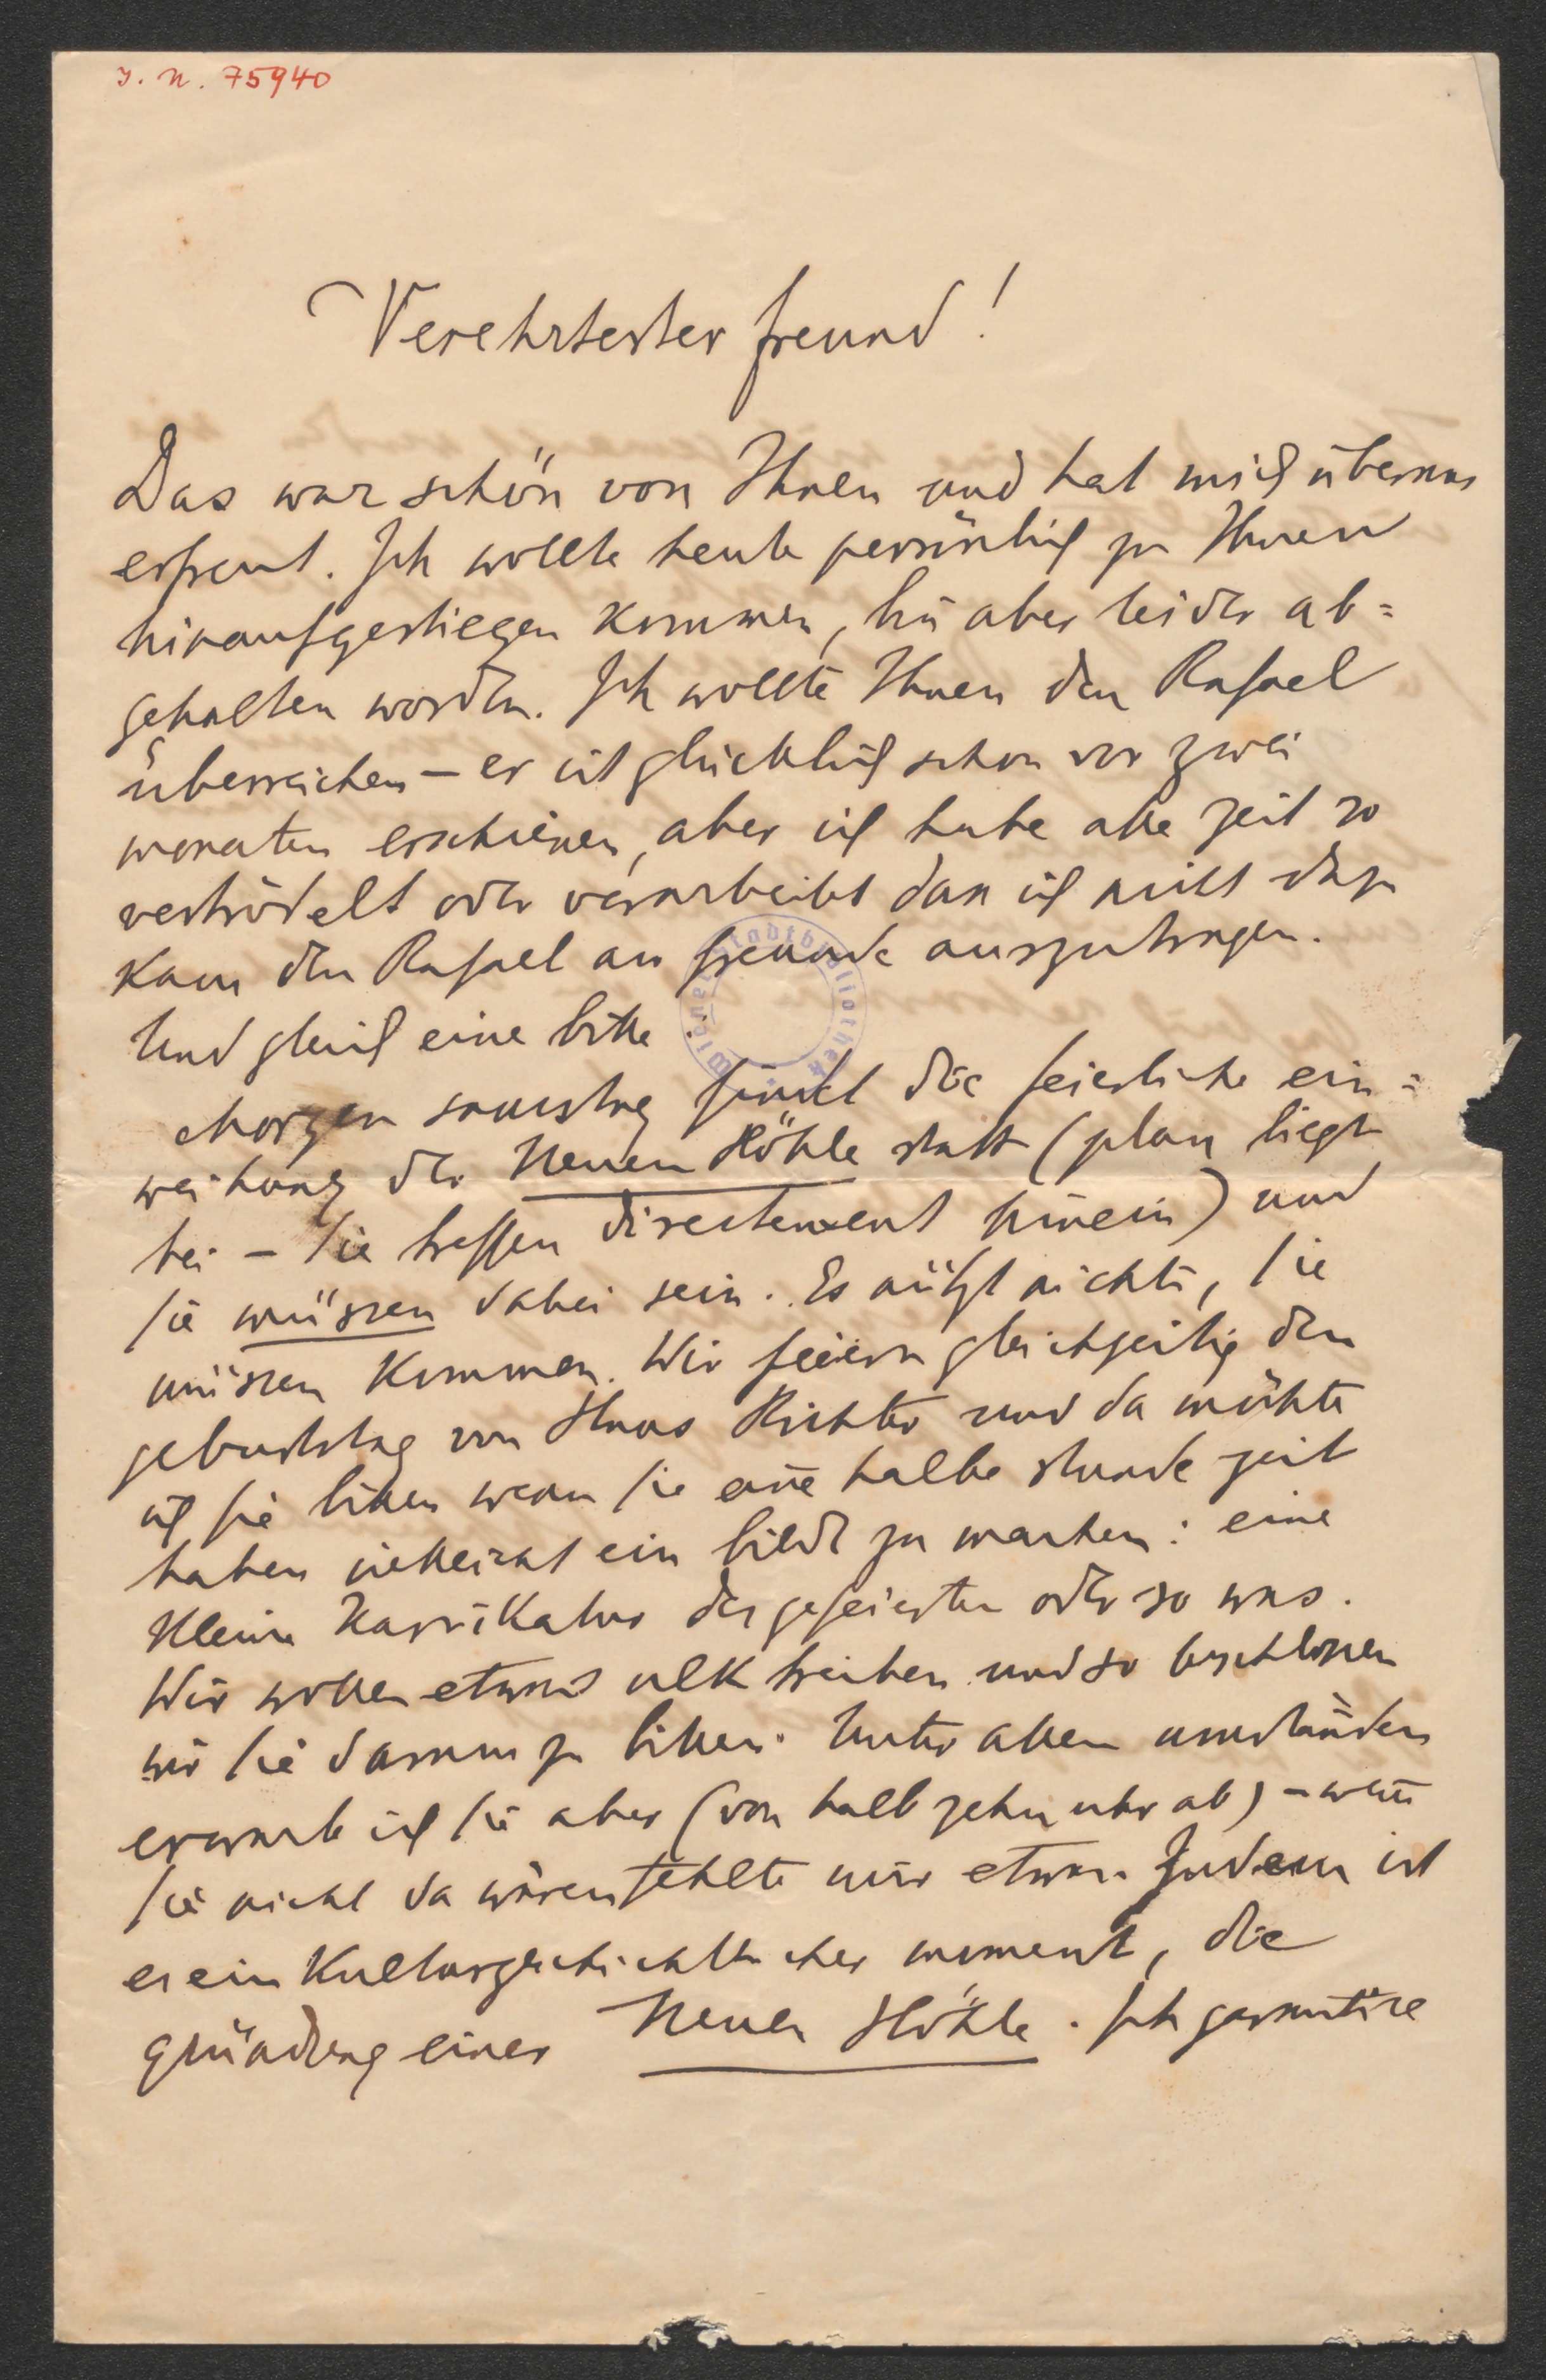 I. N. 75940
Verehrtester freund!
Das war schön von Ihnen und hat mich überaus
erfreut. Ich wollte heute persönlich zu Ihnen
hinaufgestiegen kommen, bin aber leider ab=
gehalten worden. Ich wollte Ihnen den Rafael
überreichen – er ist glücklich schon vor zwei
monaten erschienen, aber ich habe alle zeit so
vertrödelt oder verarbeitet dass ich nicht dazu
kam den Rafael an freunde auszutragen.
Und gleich eine bitte
Wiener Stadtbibliothek
Morgen samstag findet die feierliche ein=
weihung der Neuen Höhle statt (plan liegt
bei – Sie treffen directement hinein) und
Sie müssen dabei sein. Es nützt nichts, Sie
müssen kommen. Wir feiern gleichzeitig den
geburtstag von Hans Richter und da möchte
ich Sie bitten wenn Sie eine halbe stunde zeit
haben vielleicht ein bildl zu machen: eine
kleine Karrikatur des gefeierten oder so was.
Wir wollen etwas ulk treiben und so beschlossen
wir Sie darum zu bitten. Unter allen umständen
erwarte ich Sie aber (von halb zehn uhr ab) – wenn
Sie nicht da wären fehlte mir etwas. Zudem ist
es ein kulturgeschichtlicher moment, die
gründung einer Neuen Höhle. Ich garantire